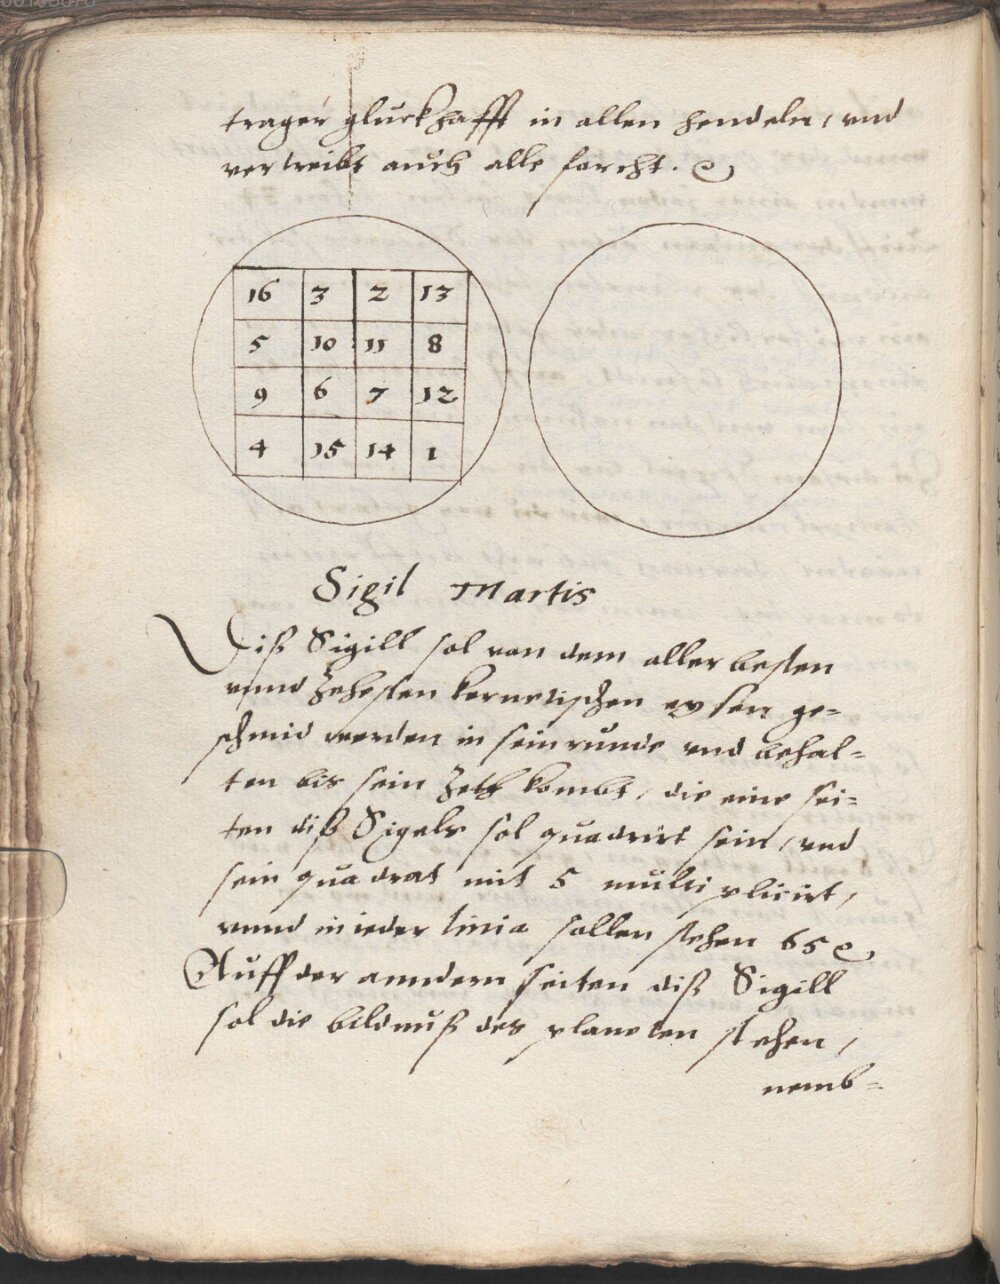 trager gluckhafft in allen hendeln, vnd
vertreibt auch alle forcht.
16 3 2 13
5 10 11 8
9 6 7 12
4 15 14 1
Sigil Martis
Diß Sigill sol von dem aller besten
vnnd zehesten kernetischen eysen ge=
schmid werden in sein runde vnd behal=
ten bis sein Zeit kombt, die eine sei=
ten diß Sigels sol quadrirt sein, vnd
sein quadrat mit 5 multiplicirt,
vnnd in ieder linia sollen stehen 65
Auff der anndern seiten diß Sigill
sol die bildnuß des planeten stehen,
nemb=